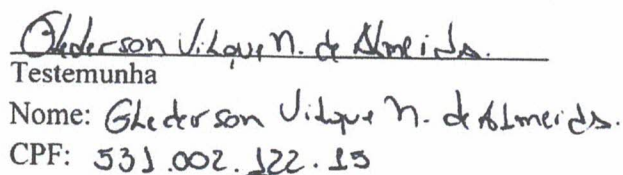 Ghederson Vilque N. de Almeida.
Testemunha
Nome: Ghederson Vilque N. de Almeida.
CPF: 531.002.122.15